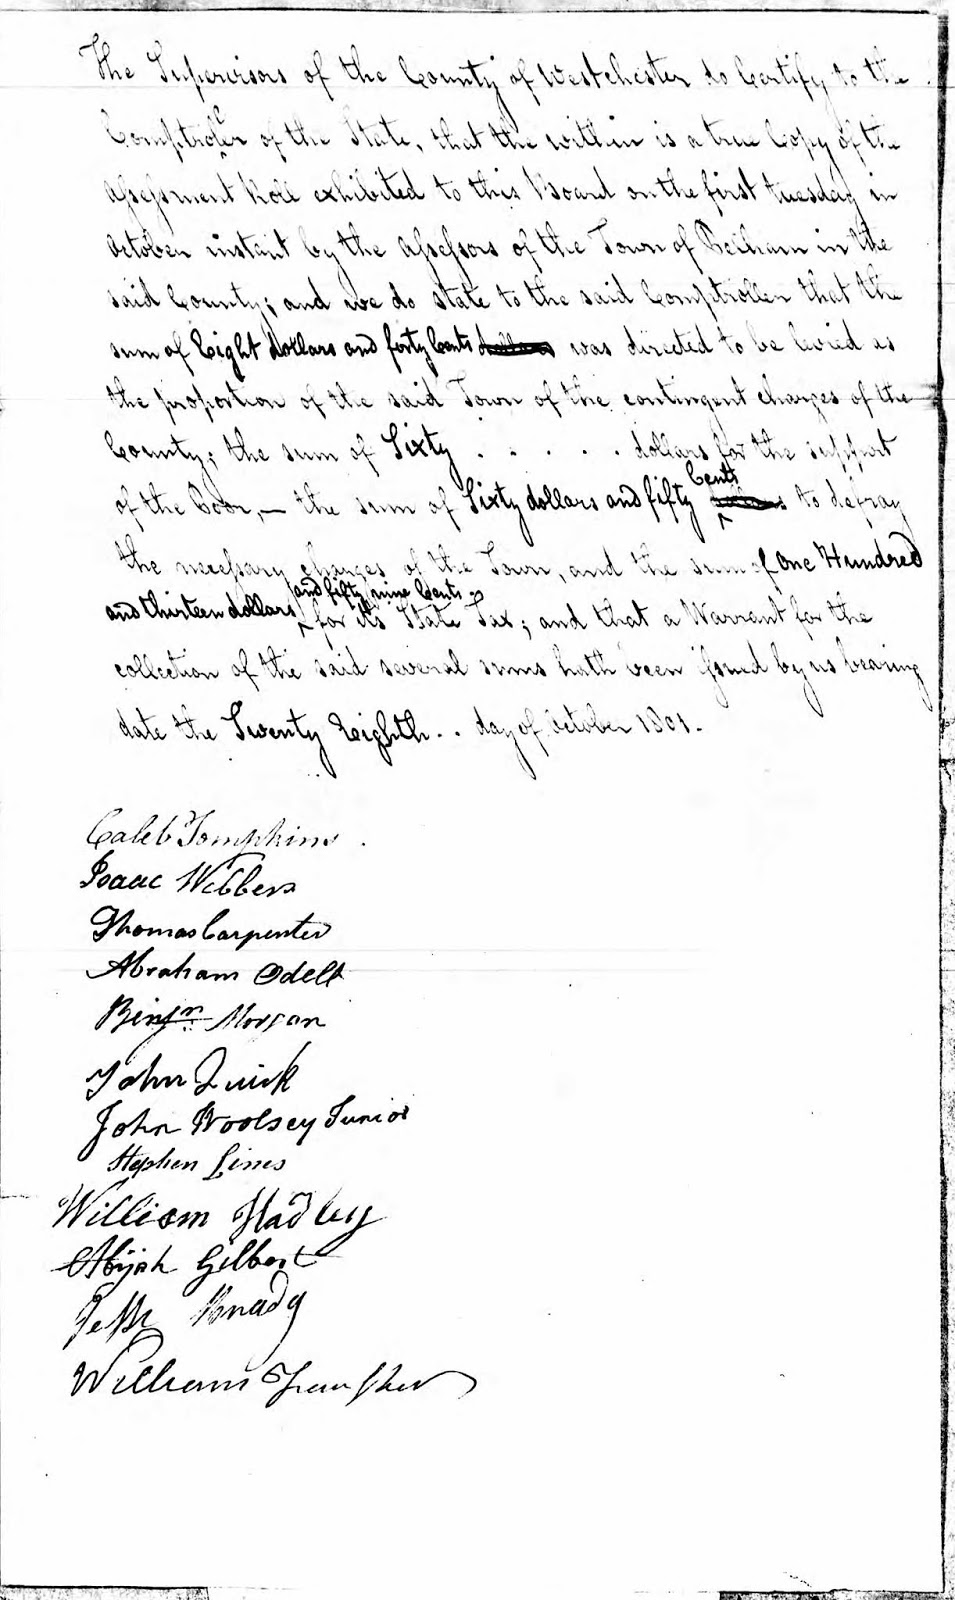 The Supervisors of the County of Westchester do Certify to the
Comptroler of the State, that the within is a true Copy of the
assessment Roll exhibited to this Board on the first tuesday in
october instant by the assessors of the Town of Pelham in the
said County; and we do state to the said Comptroller that the
sum of Eight dollars and forty Cents dollars was directed to be levied as
the proportion of the said Town of the contingent charges of the
County; the sum of Sixty . . . . . dollars for the support
of the Poor, — the sum of Sixty dollars and fifty Cents to defray
the necessary charges of the Town, and the sum of One Hundred
and thirteen dollars and fifty nine Cents for its State Tax; and that a Warrant for the
collection of the said several sums hath been issued by us bearing
date the Twenty Eighth . . day of October 1801.
Caleb Tompkins
Isaac Webbers
Thomas Carpenter
Abraham Odell
Benjn. Morgan
John Quick
John Woolsey Junior
Stephen
William Hadley
Abijah Gilbert
William